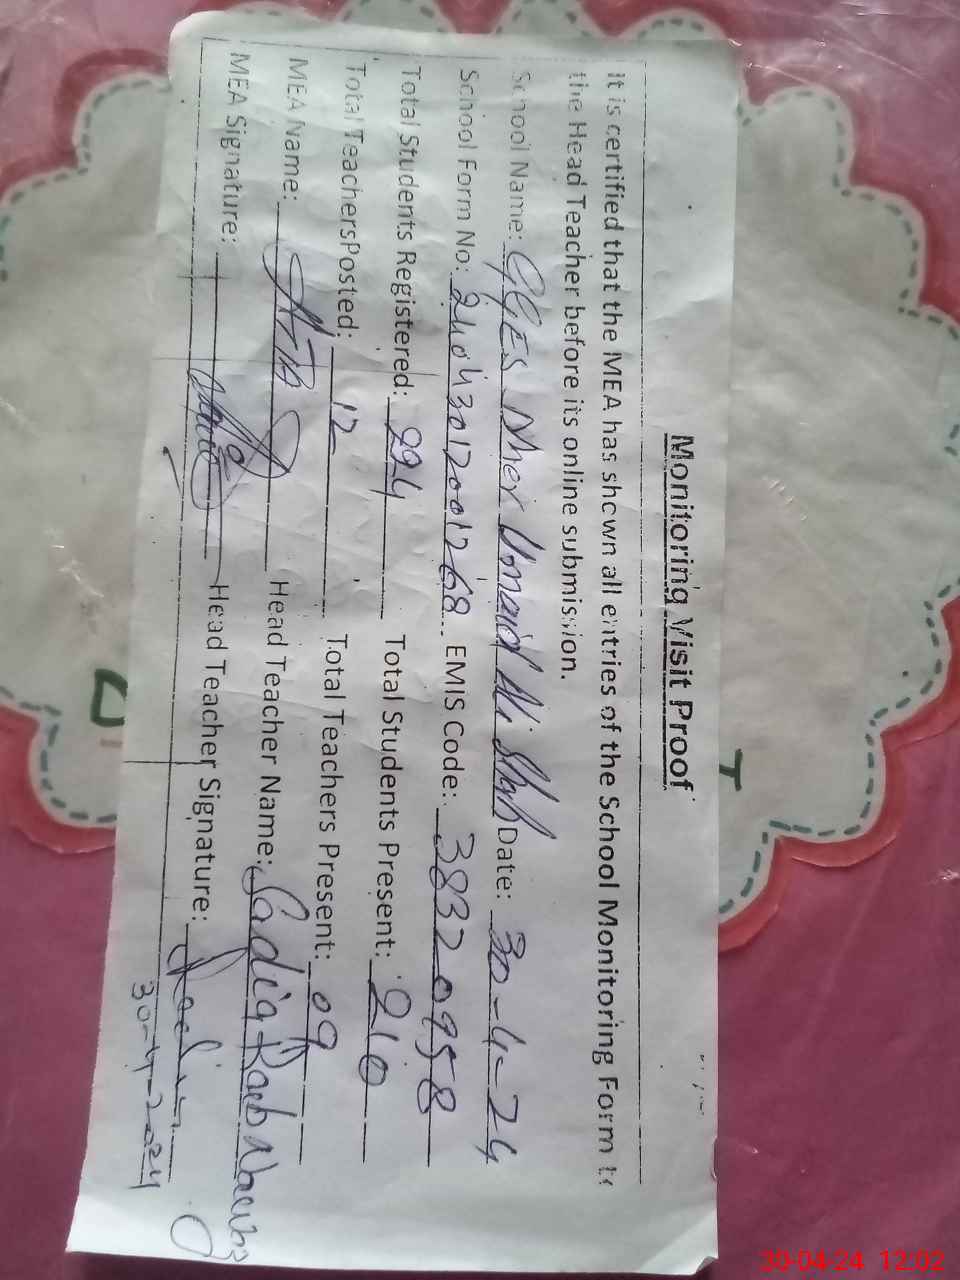 Monitoring Visit Proof
It is certified that the MEA has shown all entries of the School Monitoring Form to
the Head Teacher before its online submission.
School Name: GGES Nher Umaid Ali Shah Date: 30-4-24
School Form No: 240430120001268 EMIS Code: 38320958
Total Students Registered: 224 Total Students Present: 210
Total TeachersPosted: 12 Total Teachers Present: 09
MEA Name: Head Teacher Name: Sadia Rab
MEA Signature: Head Teacher Signature:
30-4-2024
30-04-24 12:02